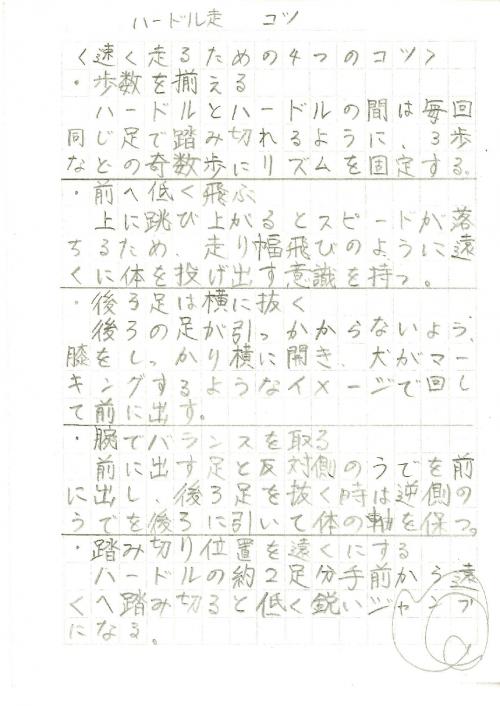 ハードル走 コツ
〈速く走るための4つのコツ〉
・歩数を揃える
ハードルとハードルの間は毎回
同じ足で踏み切れるように、3歩
などの奇数歩にリズムを固定する。
・前へ低く飛ぶ
上に跳び上がるとスピードが落
ちるため、走り幅飛びのように遠
くに体を投げ出す意識を持つ。
・後ろ足は横に抜く
後ろの足が引っかからないよう、
膝をしっかり横に開き、犬がマー
キングするようなイメージで回し
て前に出す。
・腕でバランスを取る
前に出す足と反対側のうでを前
に出し、後ろ足を抜く時は逆側の
うでを後ろに引いて体の軸を保つ。
・踏み切り位置を遠くにする
ハードルの約2足分手前から遠
くへ踏み切ると低く鋭いジャンプ
になる。